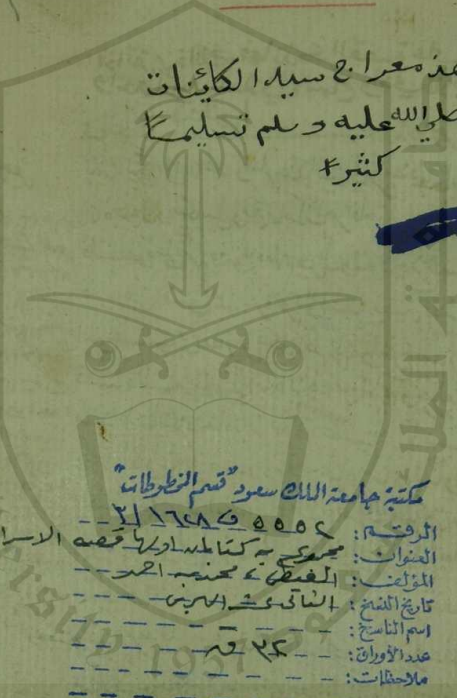 هذ معراج سيد الكائينات
صلي الله عليه وسلم تسليماً
كثيراً
مكتبة جامعة الملك سعود "قسم المخطوطات"
الرقم: ٥٥٥٢ ف ١٦٢٨ / ٣
العنوان: مجموع به كتابان اولها قصة الاسرا
المؤلف: الغيطي، محمد بن احمد
تاريخ النسخ: الثاني عشر الهجري
اسم الناسخ:
عدد الأوراق: ٣٢ ق
ملاحظات:
1957